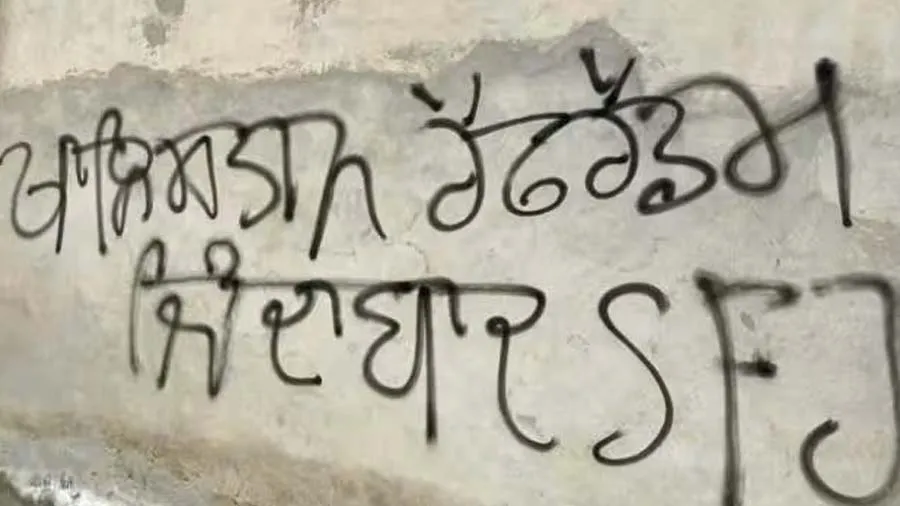 ਖਾਲਿਸਤਾਨ ਰੈਫਰੈਂਡਮ
ਜਿੰਦਾਬਾਦ SFJ